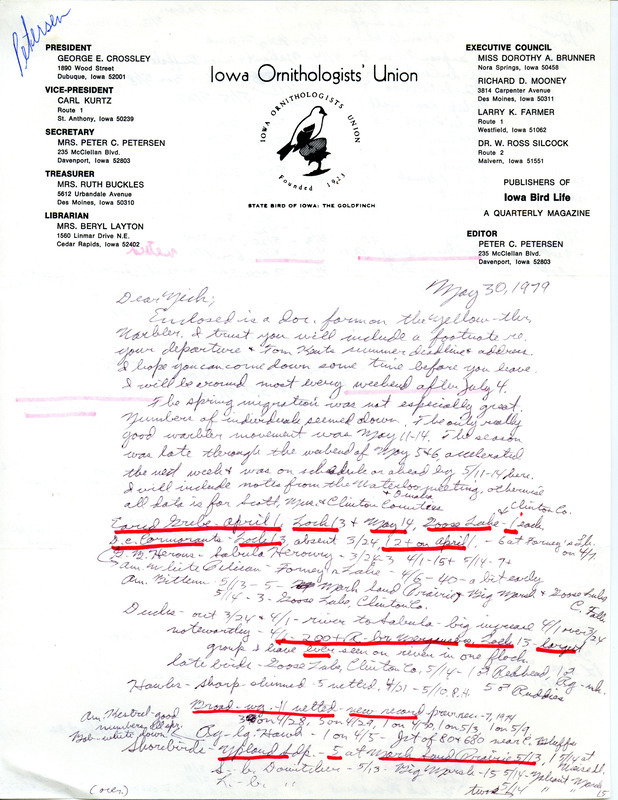 Petersen
PRESIDENT
GEORGE E. CROSSLEY
1890 Wood Street
Dubuque, Iowa 52001
VICE-PRESIDENT
CARL KURTZ
Route 1
St. Anthony, Iowa 50239
SECRETARY
MRS. PETER C. PETERSEN
235 McClellan Blvd.
Davenport, Iowa 52803
TREASURER
MRS. RUTH BUCKLES
5612 Urbandale Avenue
Des Moines, Iowa 50310
LIBRARIAN
MRS. BERYL LAYTON
1560 Linmar Drive N.E.
Cedar Rapids, Iowa 52402
Iowa Ornithologists' Union
IOWA ORNITHOLOGISTS UNION
Founded 1923
STATE BIRD OF IOWA: THE GOLDFINCH
EXECUTIVE COUNCIL
MISS DOROTHY A. BRUNNER
Nora Springs, Iowa 50458
RICHARD D. MOONEY
3814 Carpenter Avenue
Des Moines, Iowa 50311
LARRY K. FARMER
Route 1
Westfield, Iowa 51062
DR. W. ROSS SILCOCK
Route 2
Malvern, Iowa 51551
PUBLISHERS OF
Iowa Bird Life
A QUARTERLY MAGAZINE
EDITOR
PETER C. PETERSEN
235 McClellan Blvd.
Davenport, Iowa 52803
May 30, 1979
Dear Nick,
Enclosed is a doc. form on the Yellow-thr.
Warbler. I trust you will include a footnote re.
your departure & Tom Kent's summer deadline & address.
I hope you can come down some time before you leave.
I will be around most every weekend after July 4.
The spring migration was not especially great.
Numbers of individuals seemed down. The only really
good warbler movement was May 11-14. The season
was late through the weekend of May 5&6 accelerated
the next week & was on schedule or ahead by 5/11-14 here.
I will include notes from the Waterloo meeting, otherwise
all data is for Scott, Mus. & Clinton Counties
Eared Grebe April 1, Lock 13 & May 14, Goose Lake - 1 each
Clinton Co.
D.c. Cormorants - Lock 13, absent 3/24, 12+ on April 1, - 6 at Forney's Lk.
on 4/7.
G. B. Herons - Sabula Herowry - 3/24-3 4/1-15+ 5/14-7+
Am. White Pelican - Forney's Lake - 4/6 - 40 - a bit early
Am. Bittern 5/13 - 5 - Marsh Land Prairie & Big Marsh & Goose Lake
5/14 - 3 - Goose Lake, Clinton Co. C. Falls
Ducks - out 3/24 & 4/1 - river to Sabula - big increase 4/1 over 3/24
noteworthy - 4/1 - 200+ R. br Mergansers, Lock 13 - largest
group I have ever seen on river in one flock.
late birds - Goose Lake, Clinton Co., 5/14 - 1 Redhead,
5 Ruddies
Hawks - sharp-shinned - 5 netted, 4/21 - 5/10 P.H.
Broad-wg. - 11 netted - new record previous - 7, 1974
on 4/28, 3 on 4/29, 1 on 4/30, 1 on 5/3, 1 on 5/9
Am. Kestrel - good
numbers all spr.
Bob-white down
Rg-lg. Hawk - 1 on 4/5 - Jct of 80 & 680 near C. Bluffs
Shorebirds - Upland Sdp. - 5 at Marsh Land Prairie 5/13, 1 5/14 at
S-b. Dowitcher - 5/13 - Big Marsh - 15 5/14 -
L-b. " two 5/14 " " 15
(over)